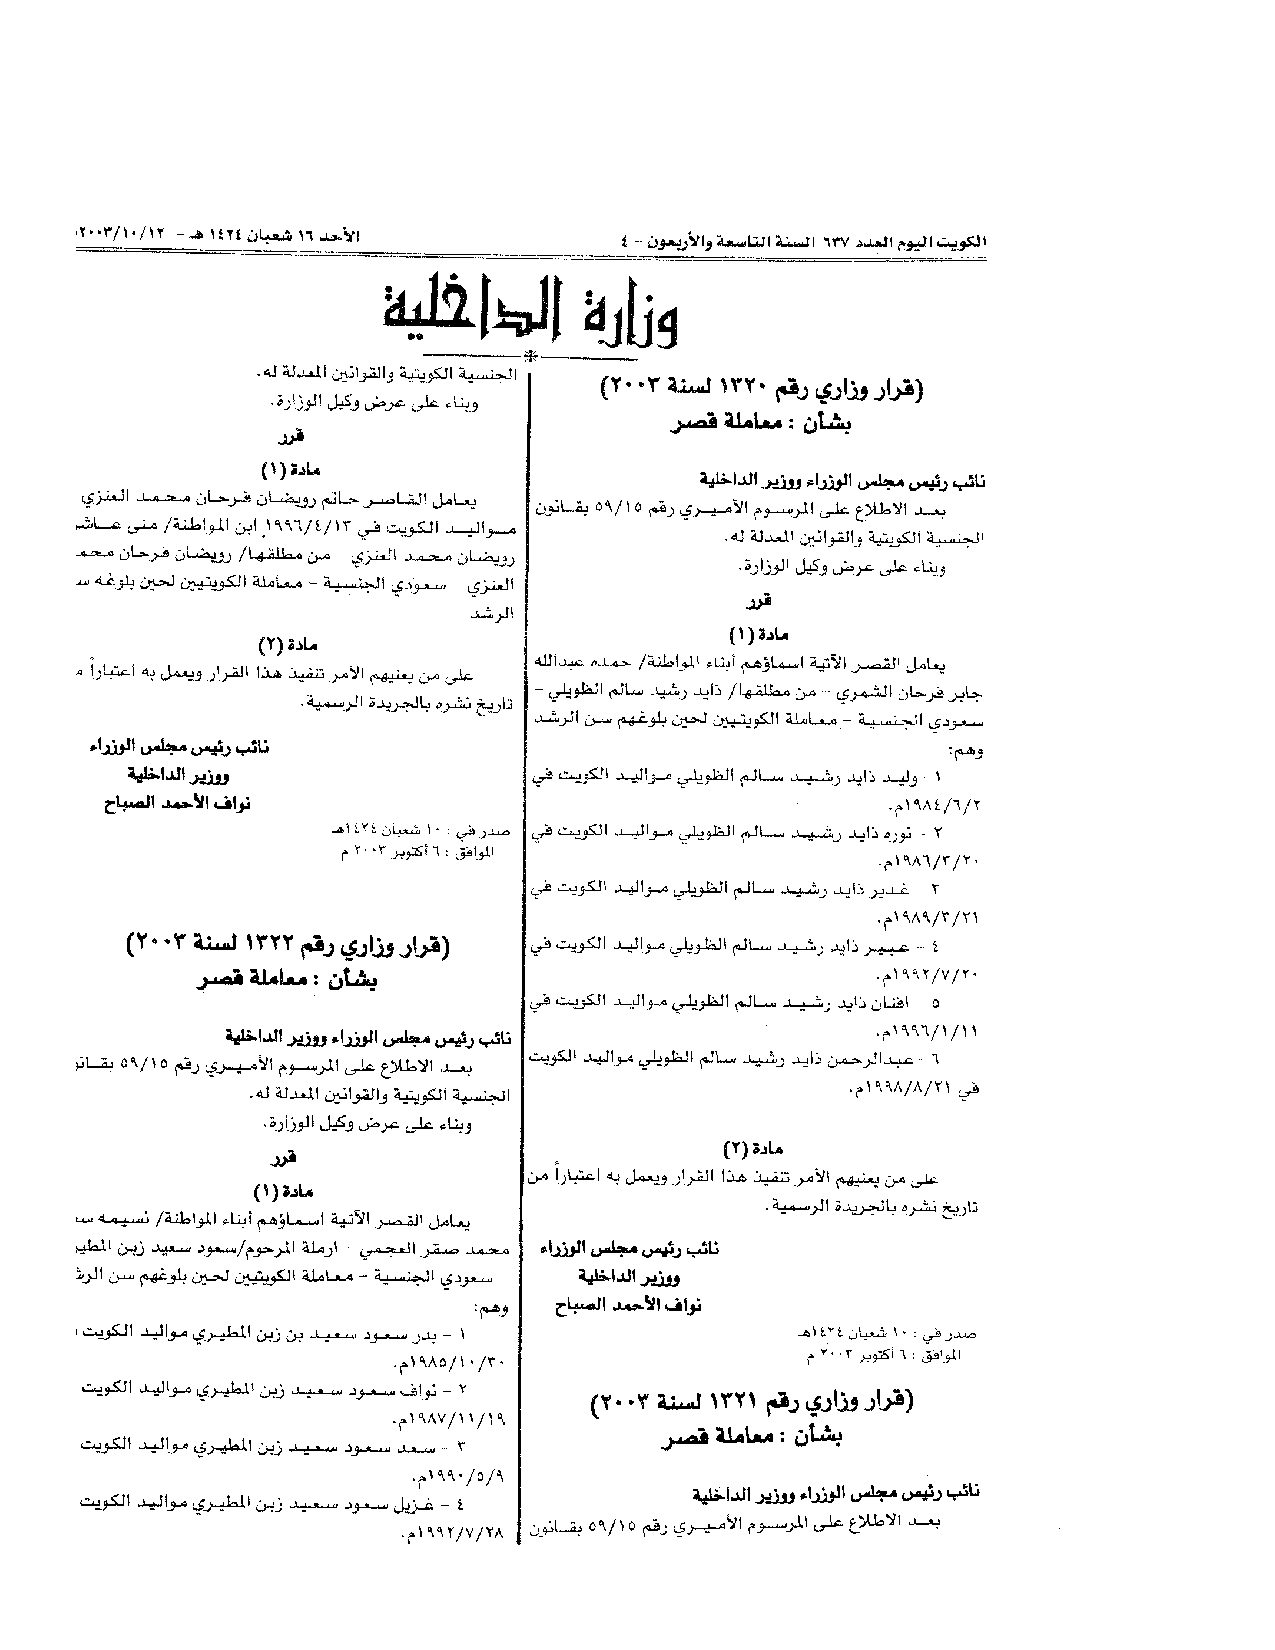 الكويت اليوم العدد ٦٣٧ السنة التاسعة والأربعون - ٤
الأحد ١٦ شعبان ١٤٢٤ هـ - ٢٠٠٣/١٠/١٢
وزارة الداخلية
(قرار وزاري رقم ١٣٢٠ لسنة ٢٠٠٣)
بشأن : معاملة قصر
نائب رئيس مجلس الوزراء ووزير الداخلية
بعد الاطلاع على المرسوم الأميري رقم ٥٩/١٥ بقانون
الجنسية الكويتية والقوانين المعدلة له.
وبناء على عرض وكيل الوزارة.
قرر
مادة (١)
يعامل القصر الآتية اسماؤهم أبناء المواطنة/ حمده عبدالله
جابر فرحان الشمري - من مطلقها/ ذايد رشيد سالم الظويلي -
سعودي الجنسية - معاملة الكويتيين لحين بلوغهم سن الرشد
وهم:
١ - وليد ذايد رشيد سالم الظويلي مواليد الكويت في
١٩٨٤/٦/٢م.
٢ - نوره ذايد رشيد سالم الظويلي مواليد الكويت في
١٩٨٦/٣/٢٠م.
٣ غدير ذايد رشيد سالم الظويلي مواليد الكويت في
١٩٨٩/٣/٢١م.
٤ - عبير ذايد رشيد سالم الظويلي مواليد الكويت في
١٩٩٢/٧/٢٠م.
٥ افنان ذايد رشيد سالم الظويلي مواليد الكويت في
١٩٩٦/١/١١م.
٦ - عبدالرحمن ذايد رشيد سالم الظويلي مواليد الكويت
في ١٩٩٨/٨/٢١م.
مادة (٢)
على من يعنيهم الأمر تنفيذ هذا القرار ويعمل به اعتباراً من
تاريخ نشره بالجريدة الرسمية.
نائب رئيس مجلس الوزراء
ووزير الداخلية
نواف الأحمد الصباح
صدر في : ١٠ شعبان ١٤٢٤هـ
الموافق : ٦ أكتوبر ٢٠٠٣ م
(قرار وزاري رقم ١٣٢١ لسنة ٢٠٠٣)
بشأن : معاملة قصر
نائب رئيس مجلس الوزراء ووزير الداخلية
بعد الاطلاع على المرسوم الأميري رقم ٥٩/١٥ بقانون
الجنسية الكويتية والقوانين المعدلة له.
وبناء على عرض وكيل الوزارة.
قرر
مادة (١)
يعامل القاصر حاتم رويضان فرحان محمد العنزي
مواليد الكويت في ١٩٩٦/٤/١٣ ابن المواطنة/ منى عاش
رويضان محمد العنزي من مطلقها/ رويضان فرحان محمد
العنزي سعودي الجنسية - معاملة الكويتيين لحين بلوغه س
الرشد
مادة (٢)
على من يعنيهم الأمر تنفيذ هذا القرار ويعمل به اعتباراً م
تاريخ نشره بالجريدة الرسمية.
نائب رئيس مجلس الوزراء
ووزير الداخلية
نواف الأحمد الصباح
صدر في : ١٠ شعبان ١٤٢٤هـ
الموافق : ٦ أكتوبر ٢٠٠٣ م
(قرار وزاري رقم ١٣٢٢ لسنة ٢٠٠٣)
بشأن : معاملة قصر
نائب رئيس مجلس الوزراء ووزير الداخلية
بعد الاطلاع على المرسوم الأميري رقم ٥٩/١٥ بقانو
الجنسية الكويتية والقوانين المعدلة له.
وبناء على عرض وكيل الوزارة.
قرر
مادة (١)
يعامل القصر الآتية اسماؤهم أبناء المواطنة/ نسيمه س
محمد صقر العجمي - ارملة المرحوم/سعود سعيد زبن المطير
سعودي الجنسية - معاملة الكويتيين لحين بلوغهم سن الرش
وهم:
١ - بدر سعود سعيد بن زبن المطيري مواليد الكويت
١٩٨٥/١٠/٣٠م.
٢ - نواف سعود سعيد زبن المطيري مواليد الكويت
١٩٨٧/١١/١٩م.
٣ - سعد سعود سعيد زبن المطيري مواليد الكويت
١٩٩٠/٥/٩م.
٤ - غزيل سعود سعيد زبن المطيري مواليد الكويت
١٩٩٢/٧/٢٨م.